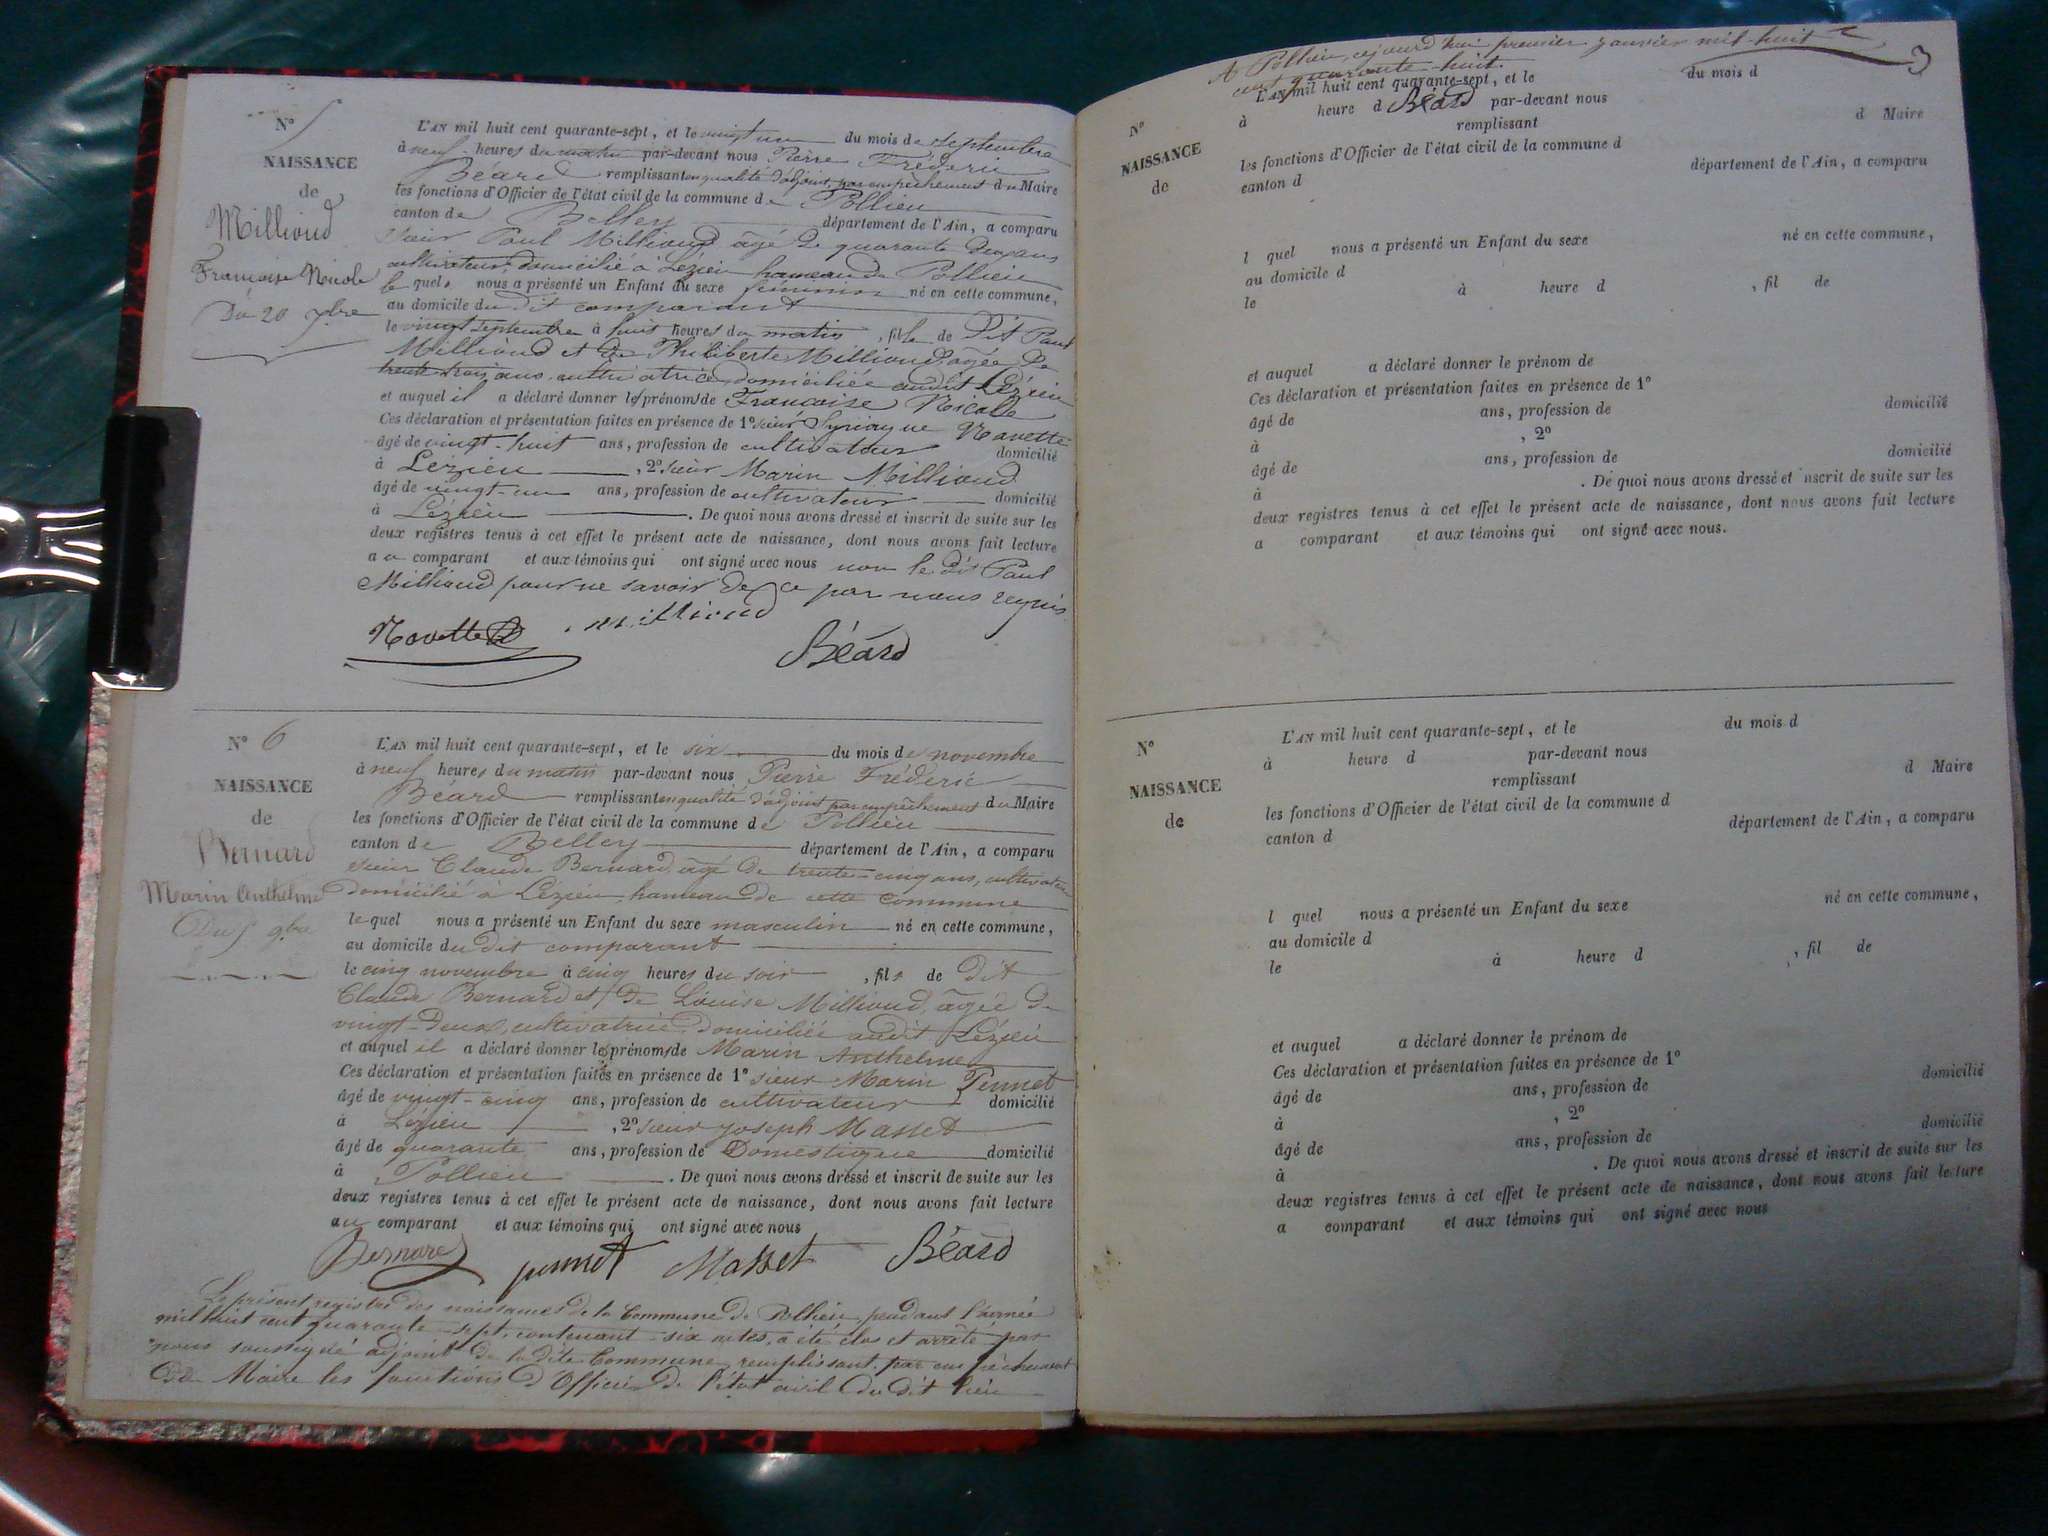 N° 5
NAISSANCE
de
Millioud
Francoise Nicole
Du 20 7bre
L'AN mil huit cent quarante-sept, et le vingt un du mois de septembre
à neuf heures du matin par-devant nous Pierre Fréderic
Béard remplissant en qualité d'adjoint, par empêchement du Maire
les fonctions d'Officier de l'état civil de la commune de Pollieu
canton de Belley département de l'Ain, a comparu
sieur Paul Millioud âgé de quarante ans
cultivateur, domicilié à Lézieu hameau de Pollieu
le quel nous a présenté un Enfant du sexe féminin né en cette commune,
au domicile du dit comparant
le vingt septembre à huit heures du matin, fille de Dit Paul
Millioud et de Philiberte Millioud, agée de
trente trois ans, cultivatrice domiciliée audit Lézieu
et auquel il a déclaré donner les prénoms de Francoise Nicole
Ces déclaration et présentation faites en présence de 1° sieur Navette
âgé de vingt-huit ans, profession de cultivateur domicilié
à Lézieu, 2° sieur Marin Millioud
âgé de vingt-un ans, profession de cultivateur domicilié
à Lézieu. De quoi nous avons dressé et inscrit de suite sur les
deux registres tenus à cet effet le présent acte de naissance, dont nous avons fait lecture
au comparant et aux témoins qui ont signé avec nous non le dit Paul
Millioud pour ne savoir de ce par nous requis
Navette Millioud
Béard
N° 6
NAISSANCE
de
Bernard
Marin Anthelme
Du 5 9bre
L'AN mil huit cent quarante-sept, et le six du mois de novembre
à neuf heures du matin par-devant nous Pierre Fréderic
Béard remplissant en qualité d'adjoint par empêchement du Maire
les fonctions d'Officier de l'état civil de la commune de Pollieu
canton de Belley département de l'Ain, a comparu
sieur Claude Bernard âgé de trente-cinq ans, cultivateur
domicilié à Lézieu, hameau de cette commune
le quel nous a présenté un Enfant du sexe masculin né en cette commune,
au domicile du dit comparant
le cinq novembre à cinq heures du soir, fils de Dit
Claude Bernard et de Louise Millioud, agée de
vingt-deux, cultivatrice, domiciliée audit Lézieu
et auquel il a déclaré donner les prénoms de Marin Anthelme
Ces déclaration et présentation faites en présence de 1° sieur Marin Pennet
âgé de vingt-cinq ans, profession de cultivateur domicilié
à Lézieu, 2° sieur Joseph Masset
âgé de quarante ans, profession de Domestique domicilié
à Pollieu. De quoi nous avons dressé et inscrit de suite sur les
deux registres tenus à cet effet le présent acte de naissance, dont nous avons fait lecture
au comparant et aux témoins qui ont signé avec nous
Bernard pennet Masset Béard
Le présent registre des naissances de la Commune de Pollieu, pendant l'année
mil huit cent quarante-sept, contenant six actes, a été clos et arrêté par
nous soussigné adjoint de la dite Commune, remplissant par empêchement
de Maire les fonctions d'Officier de l'état civil du dit lieu
A Pollieu, aujourd'hui premier janvier mil-huit
cent quarante-huit.
3
Béard
N°
NAISSANCE
de
L'AN mil huit cent quarante-sept, et le du mois d
à heure d par-devant nous
remplissant d Maire
les fonctions d'Officier de l'état civil de la commune d
canton d département de l'Ain, a comparu
l quel nous a présenté un Enfant du sexe né en cette commune,
au domicile d
le à heure d , fil de
et auquel a déclaré donner le prénom de
Ces déclaration et présentation faites en présence de 1°
âgé de ans, profession de domicilié
à , 2°
âgé de ans, profession de domicilié
à . De quoi nous avons dressé et inscrit de suite sur les
deux registres tenus à cet effet le présent acte de naissance, dont nous avons fait lecture
a comparant et aux témoins qui ont signé avec nous.
N°
NAISSANCE
de
L'AN mil huit cent quarante-sept, et le du mois d
à heure d par-devant nous
remplissant d Maire
les fonctions d'Officier de l'état civil de la commune d
canton d département de l'Ain, a comparu
l quel nous a présenté un Enfant du sexe né en cette commune,
au domicile d
le à heure d , fil de
et auquel a déclaré donner le prénom de
Ces déclaration et présentation faites en présence de 1°
âgé de ans, profession de domicilié
à , 2°
âgé de ans, profession de domicilié
à . De quoi nous avons dressé et inscrit de suite sur les
deux registres tenus à cet effet le présent acte de naissance, dont nous avons fait lecture
a comparant et aux témoins qui ont signé avec nous